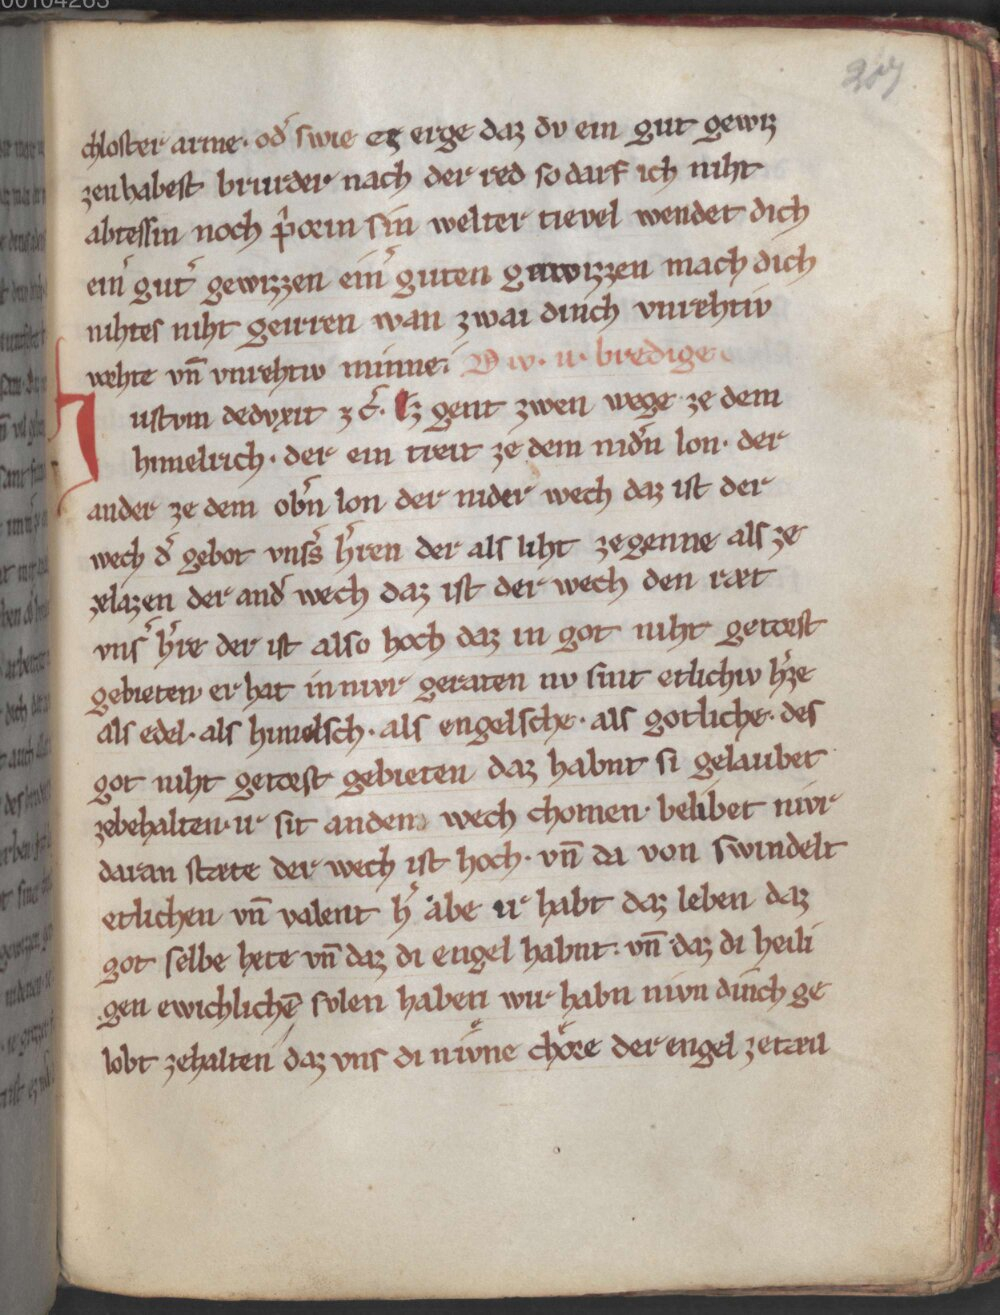 00104263
217
chloster arme· od᷑ swie ez erge daz dv ein gut gewiz
zen habest brurder nach der red so darf ich niht
abtessin noch p̓orin sin welter tievel wendet dich
ein᷑ gut᷑ gewizzen ein᷑ guten gewizzen mach dich
nihtes niht geirren wan zwai dinch vnrehtiv
wehte vn̄ vnrehtiv minne· Div· ii· bredige·
Iustvm dedvxit ⁊ c̄· Ez gent zwen wege ze dem
himelrich· der ein treit ze dem nid᷑n lon· der
ander ze dem ob᷑n lon der nider wech daz ist der
wech d᷑ gebot vns᷑s h᷑ren der als liht ze genne als ze
zelazen der and᷑ wech daz ist der wech den ræt
vns᷑ h᷑re der ist also hoch daz in got niht getorst
gebieten· er hat in nivr geraten nv sint etlichiv h᷑ze
als edel· als himelsch· als engelsche· als gotliche· des
got niht getorst gebieten daz habnt si gelaubet
zebehalten· ir sit an den wech chomen· belibet nivr
daran stæte der wech ist hoch· vn̄ da von swindelt
etlichen vn̄ valent h᷑ abe ir habt daz leben daz
got selbe hete vn̄ daz di engel habnt· vn̄ daz di heili
gen ewichlichē svlen haben wir habn nivn dinch ge
lobt zehalten daz vns di nivne chŏre der engel zetæil